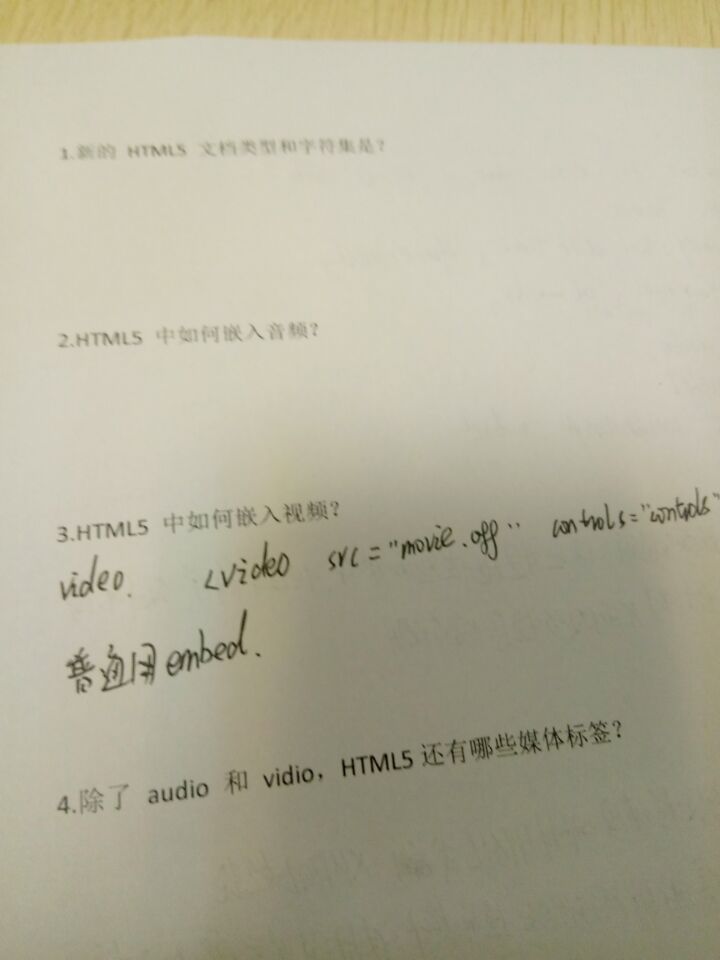 1.新的 HTML5 文档类型和字符集是？
2.HTML5 中如何嵌入音频？
3.HTML5 中如何嵌入视频？
video. <video src="movie.ogg" controls="controls"
普通用embed.
4.除了 audio 和 vidio，HTML5 还有哪些媒体标签？